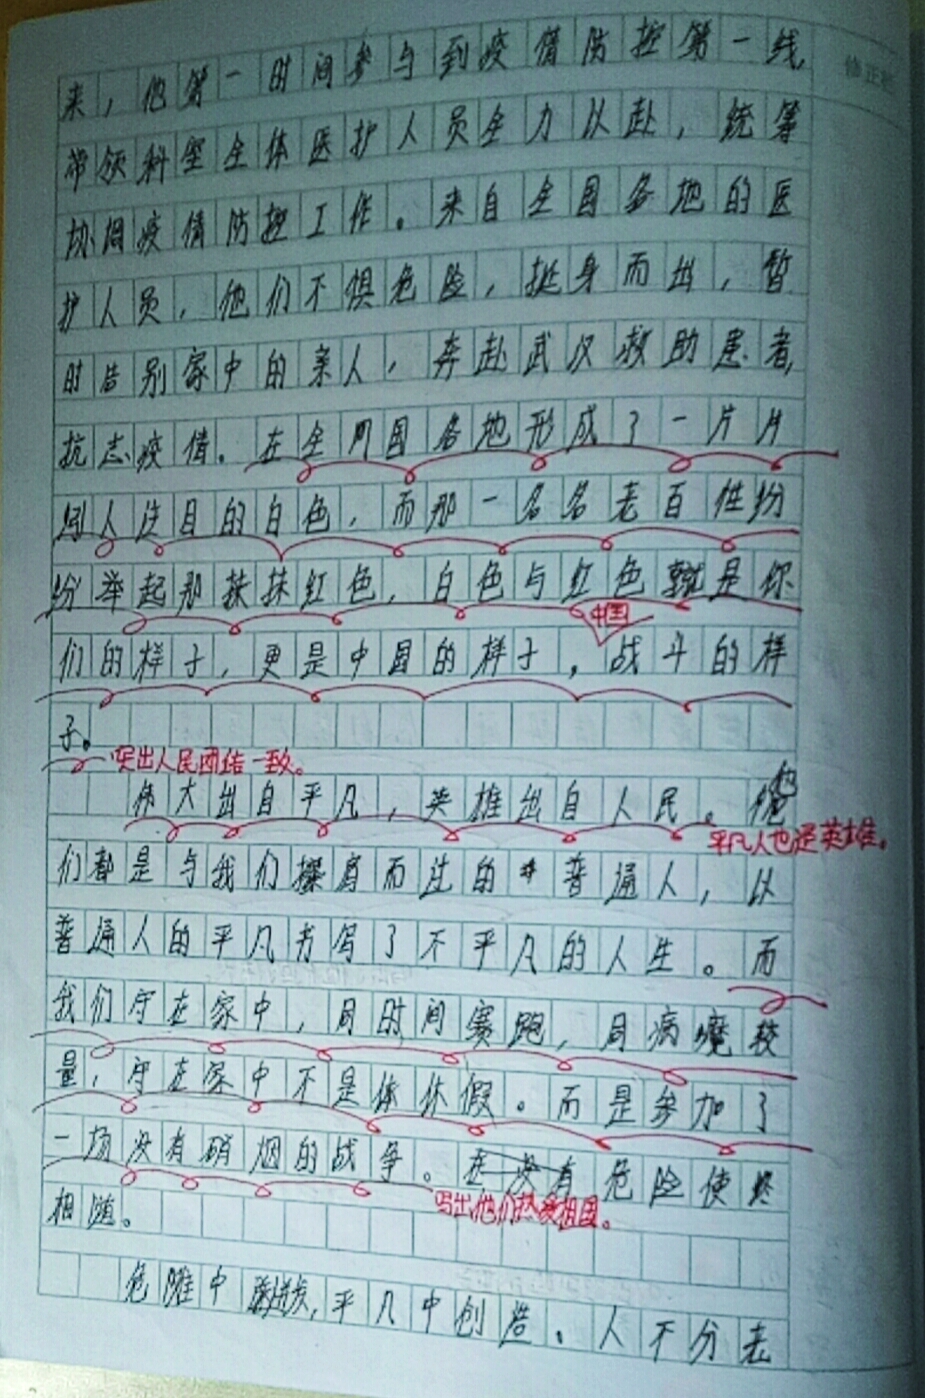 修正栏
来，他第一时间参与到疫情防控第一线，
带领科室全体医护人员全力以赴，统筹
协调疫情防控工作。来自全国各地的医
护人员，他们不惧危险，挺身而出，暂
时告别家中的亲人，奔赴武汉救助患者，
抗志疫情。在全国各地形成了一片片
引人注目的白色，而那一名名老百姓纷
纷举起那抹抹红色，白色与红色就是你
中国
们的样子，更是中国的样子，战斗的样
子。
突出人民团结一致。
伟大出自平凡，英雄出自人民。他
平凡人也是英雄。
们都是与我们擦肩而过的普通人，以
普通人的平凡书写了不平凡的人生。而
我们守在家中，同时间赛跑，同病魔较
量，守在家中不是体休假。而是参加了
一场没有硝烟的战争。在没有危险使终
写出他们热爱祖国。
相随。
危难中激发，平凡中创造。人不分老